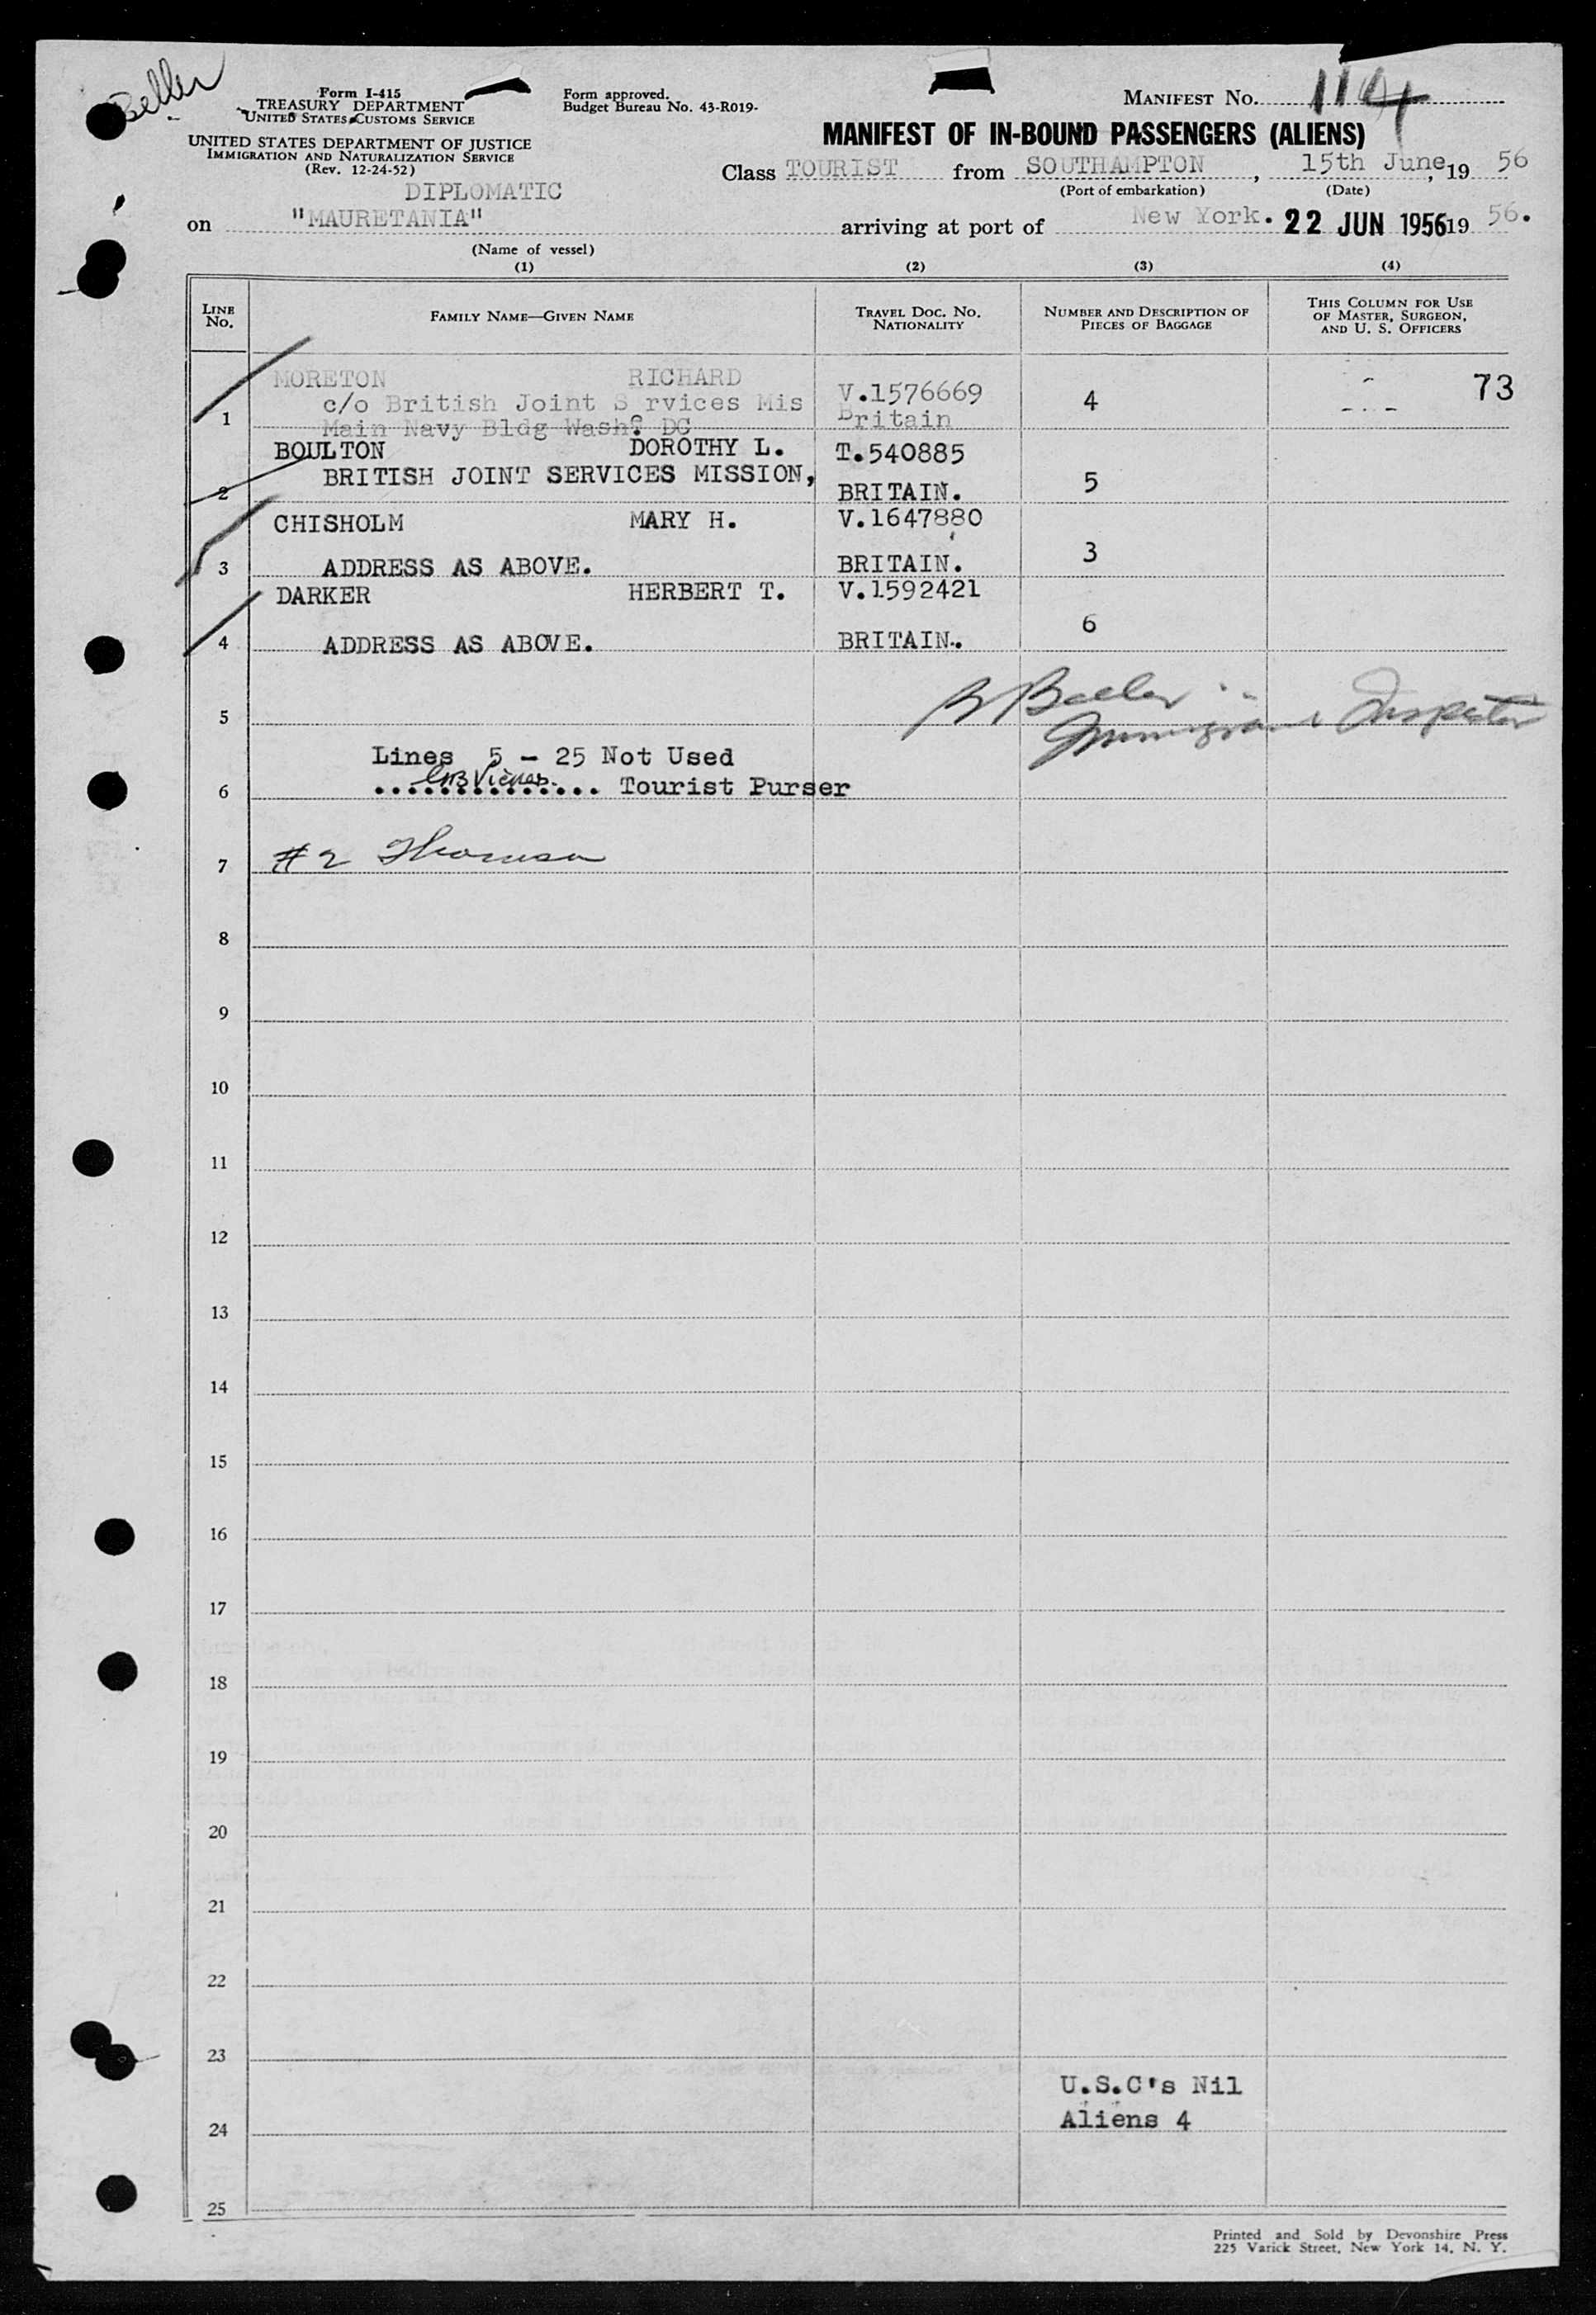 Beller
Form I-415
TREASURY DEPARTMENT
UNITED STATES CUSTOMS SERVICE
UNITED STATES DEPARTMENT OF JUSTICE
IMMIGRATION AND NATURALIZATION SERVICE
(Rev. 12-24-52)
Form approved.
Budget Bureau No. 43-R019-
MANIFEST NO. 114
MANIFEST OF IN-BOUND PASSENGERS (ALIENS)
Class TOURIST from SOUTHAMPTON, 15th June, 19 56
(Port of embarkation) (Date)
DIPLOMATIC
on "MAURETANIA" arriving at port of New York. 22 JUN 1956 19 56.
(Name of vessel)
(1) (2) (3) (4)
LINE No. FAMILY NAME—GIVEN NAME TRAVEL DOC. NO. NATIONALITY NUMBER AND DESCRIPTION OF PIECES OF BAGGAGE THIS COLUMN FOR USE OF MASTER, SURGEON, AND U. S. OFFICERS
MORETON RICHARD V.1576669 4 73
1 c/o British Joint S rvices Mis Britain
Main Navy Bldg Wash DC
BOULTON DOROTHY L. T.540885
2 BRITISH JOINT SERVICES MISSION, BRITAIN. 5
CHISHOLM MARY H. V.1647880
3 ADDRESS AS ABOVE. BRITAIN. 3
DARKER HERBERT T. V.1592421
4 ADDRESS AS ABOVE. BRITAIN. 6
5 Beller
Immigrant Inspector
Lines 5 - 25 Not Used
6 .............. Tourist Purser
7 #2 Thomson
8
9
10
11
12
13
14
15
16
17
18
19
20
21
22
23
U.S.C's Nil
24 Aliens 4
25
Printed and Sold by Devonshire Press
225 Varick Street, New York 14, N. Y.